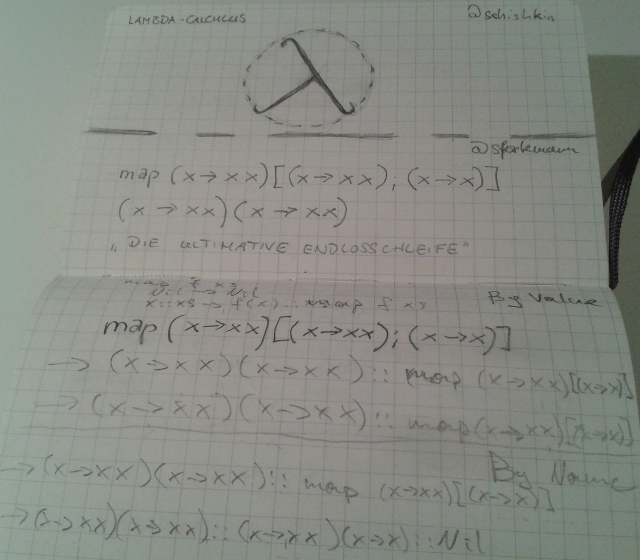 LAMBDA-CALCULUS @sshishkin
λ
@sforkmann
map (x→xx)[(x→xx); (x→x)]
(x→xx)(x→xx)
„DIE ULTIMATIVE ENDLOSSCHLEIFE"
Nil → Nil
x::xs → f(x)::map f xs
By Value
map (x→xx)[(x→xx); (x→x)]
→ (x→xx)(x→xx):: map (x→xx)[(x→x)]
→ (x→xx)(x→xx):: map (x→xx)[(x→x)]
By Name
→ (x→xx)(x→xx):: map (x→xx)[(x→x)]
→ (x→xx)(x→xx)::(x→xx)(x→x)::Nil